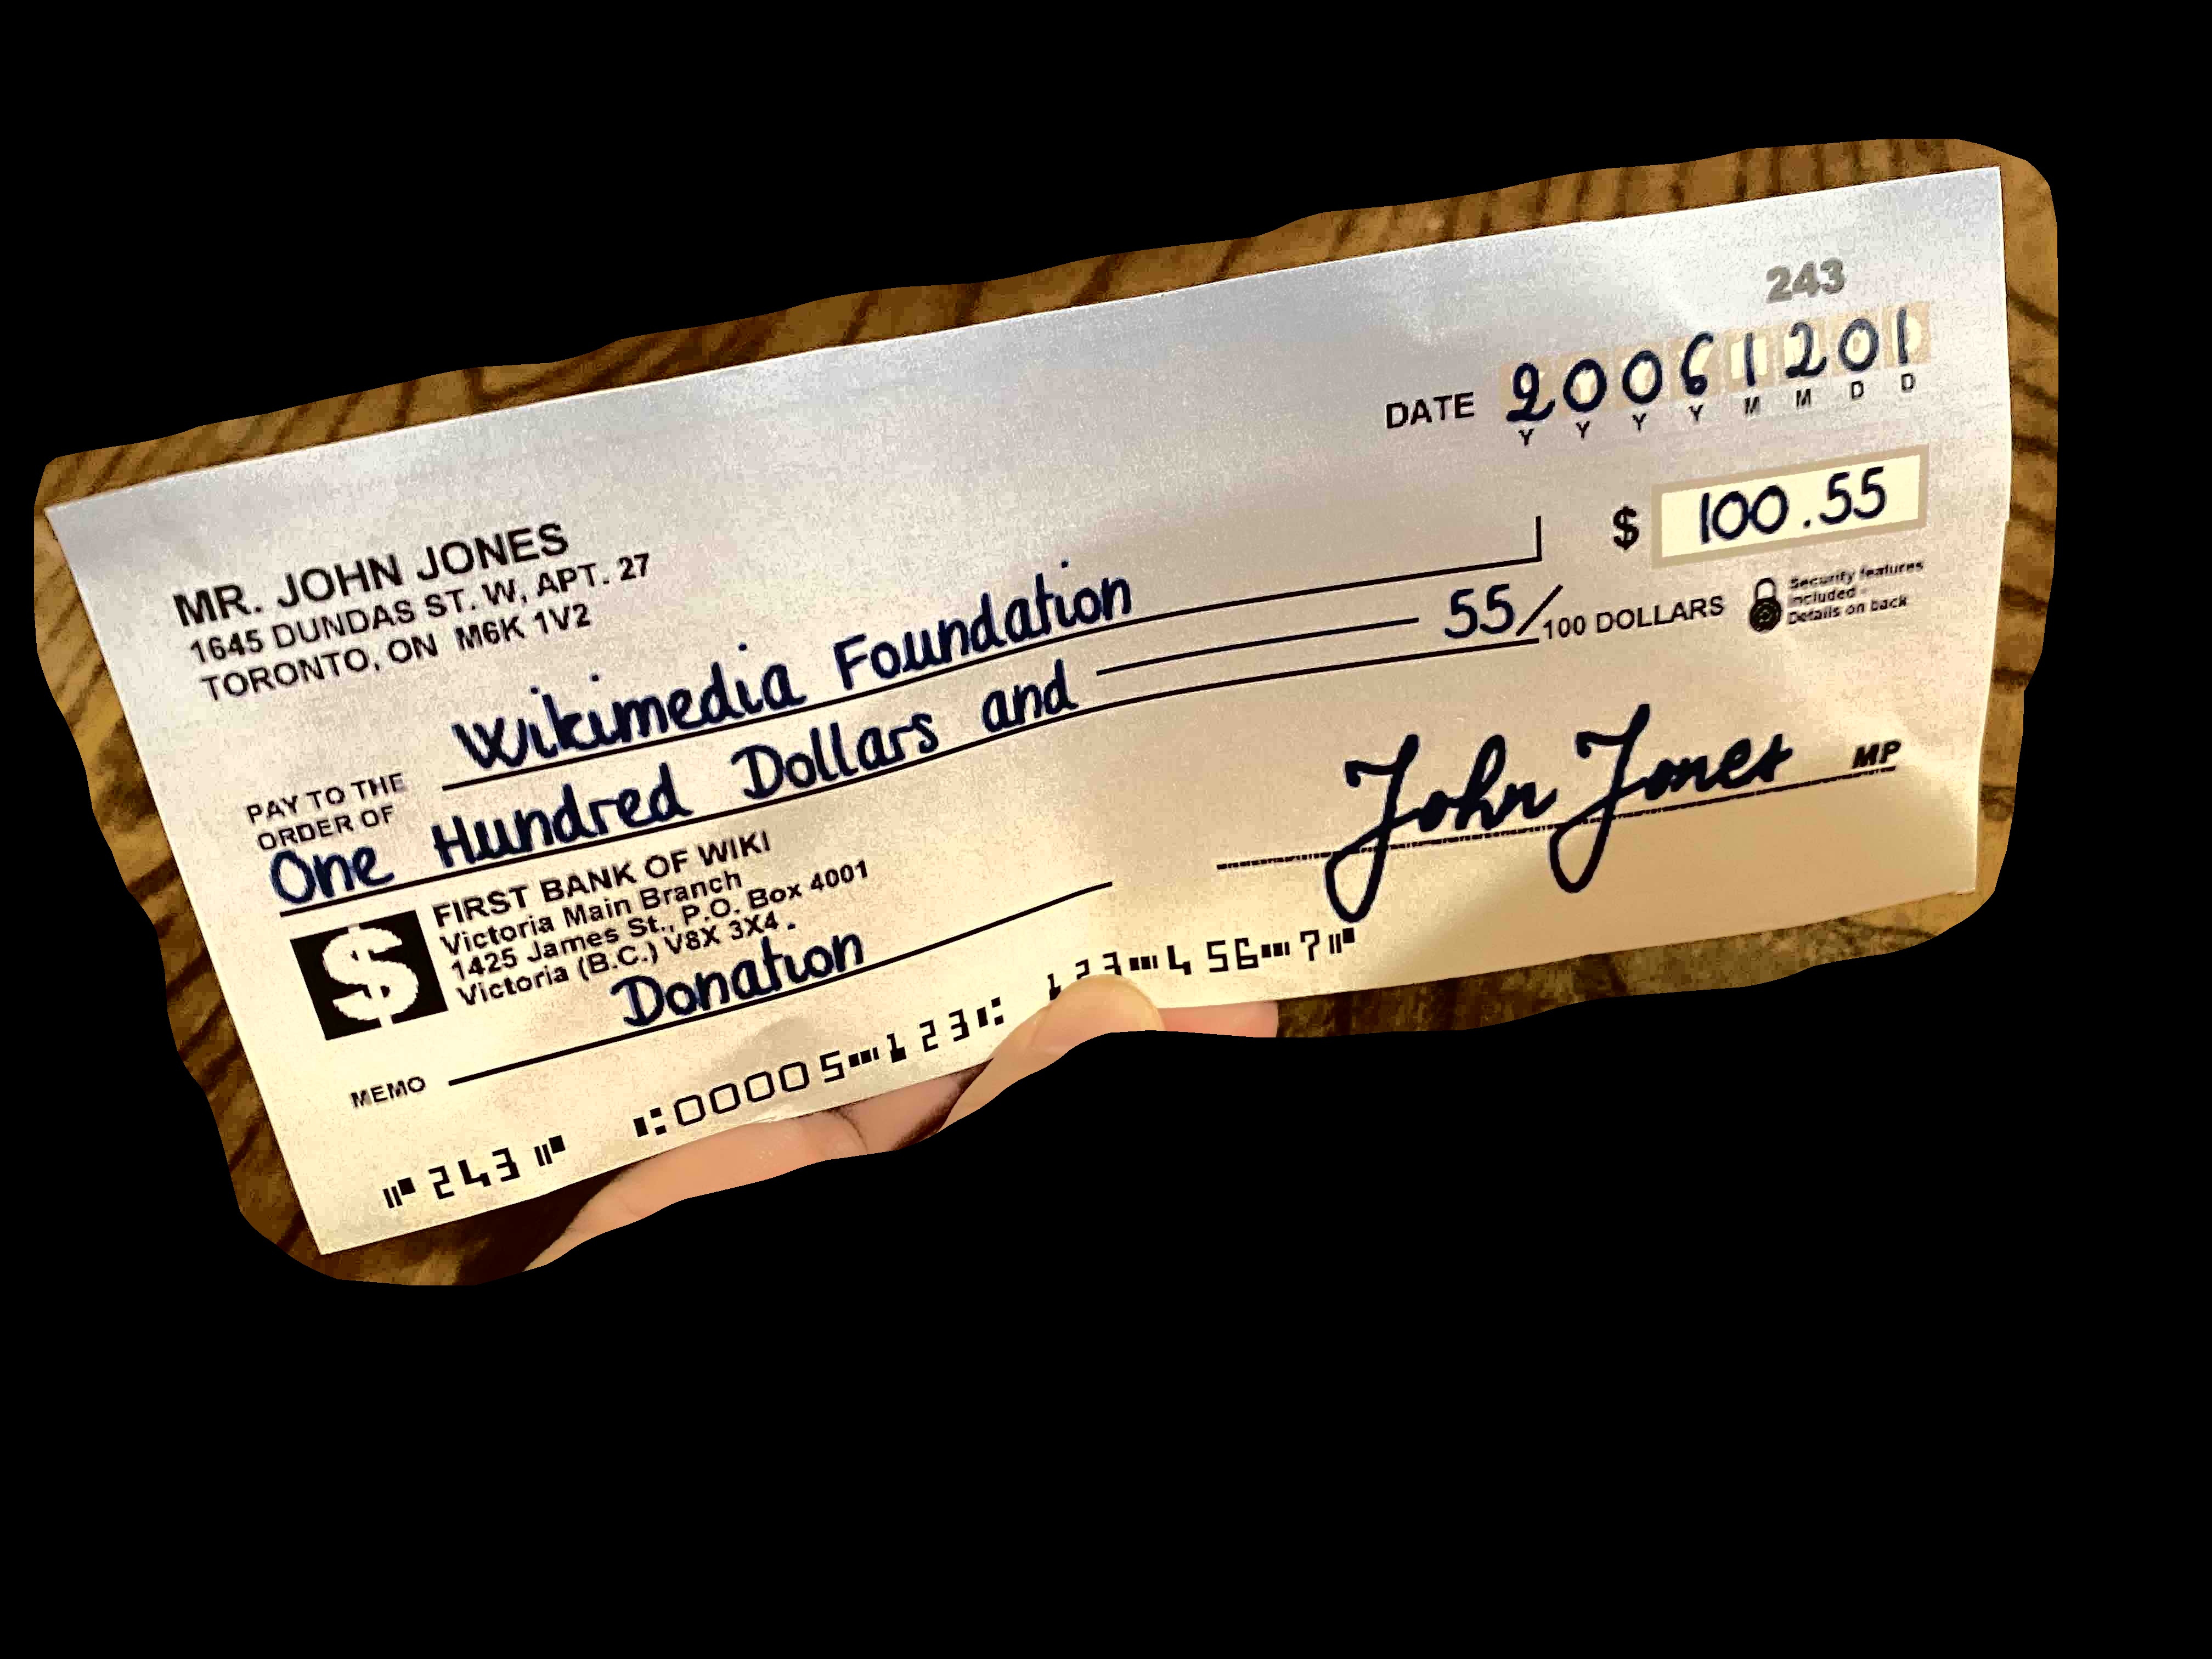 243
DATE 20061201
Y Y Y Y M M D D
MR. JOHN JONES
1645 DUNDAS ST. W, APT. 27
TORONTO, ON M6K 1V2
$ 100.55
PAY TO THE
ORDER OF
Wikimedia Foundation
One Hundred Dollars and 55/100 DOLLARS
Security features
included -
Details on back
FIRST BANK OF WIKI
Victoria Main Branch
1425 James St., P.O. Box 4001
Victoria (B.C.) V8X 3X4.
$
John Jones MP
MEMO Donation
⑈243⑈ ⑆00005⑉123⑆ 123⑉456⑉7⑈